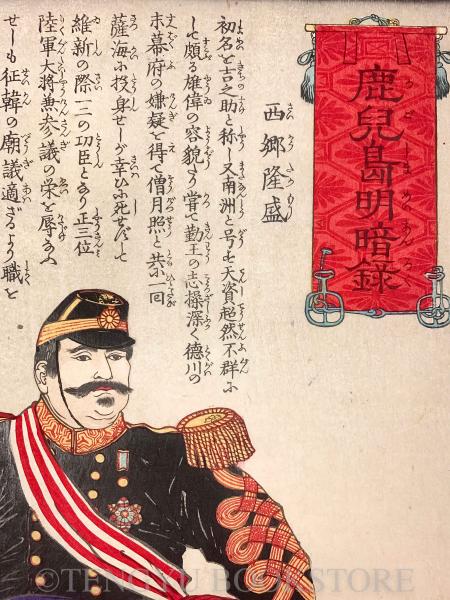 鹿兒島明暗録
西郷隆盛
初名を吉之助と称し又南洲と号す天資超然不群に
して頗る雄偉の容貌あり嘗て勤王の志操深く徳川の
末幕府の嫌疑を得て僧月照と共に一回
薩海に投身せしが幸ひに死せずして
維新の際一二の功臣となり正三位
陸軍大将兼参議の栄を辱ふ
せしも征韓の廟議適ざるより職を
©TENGYU BOOKSTORE